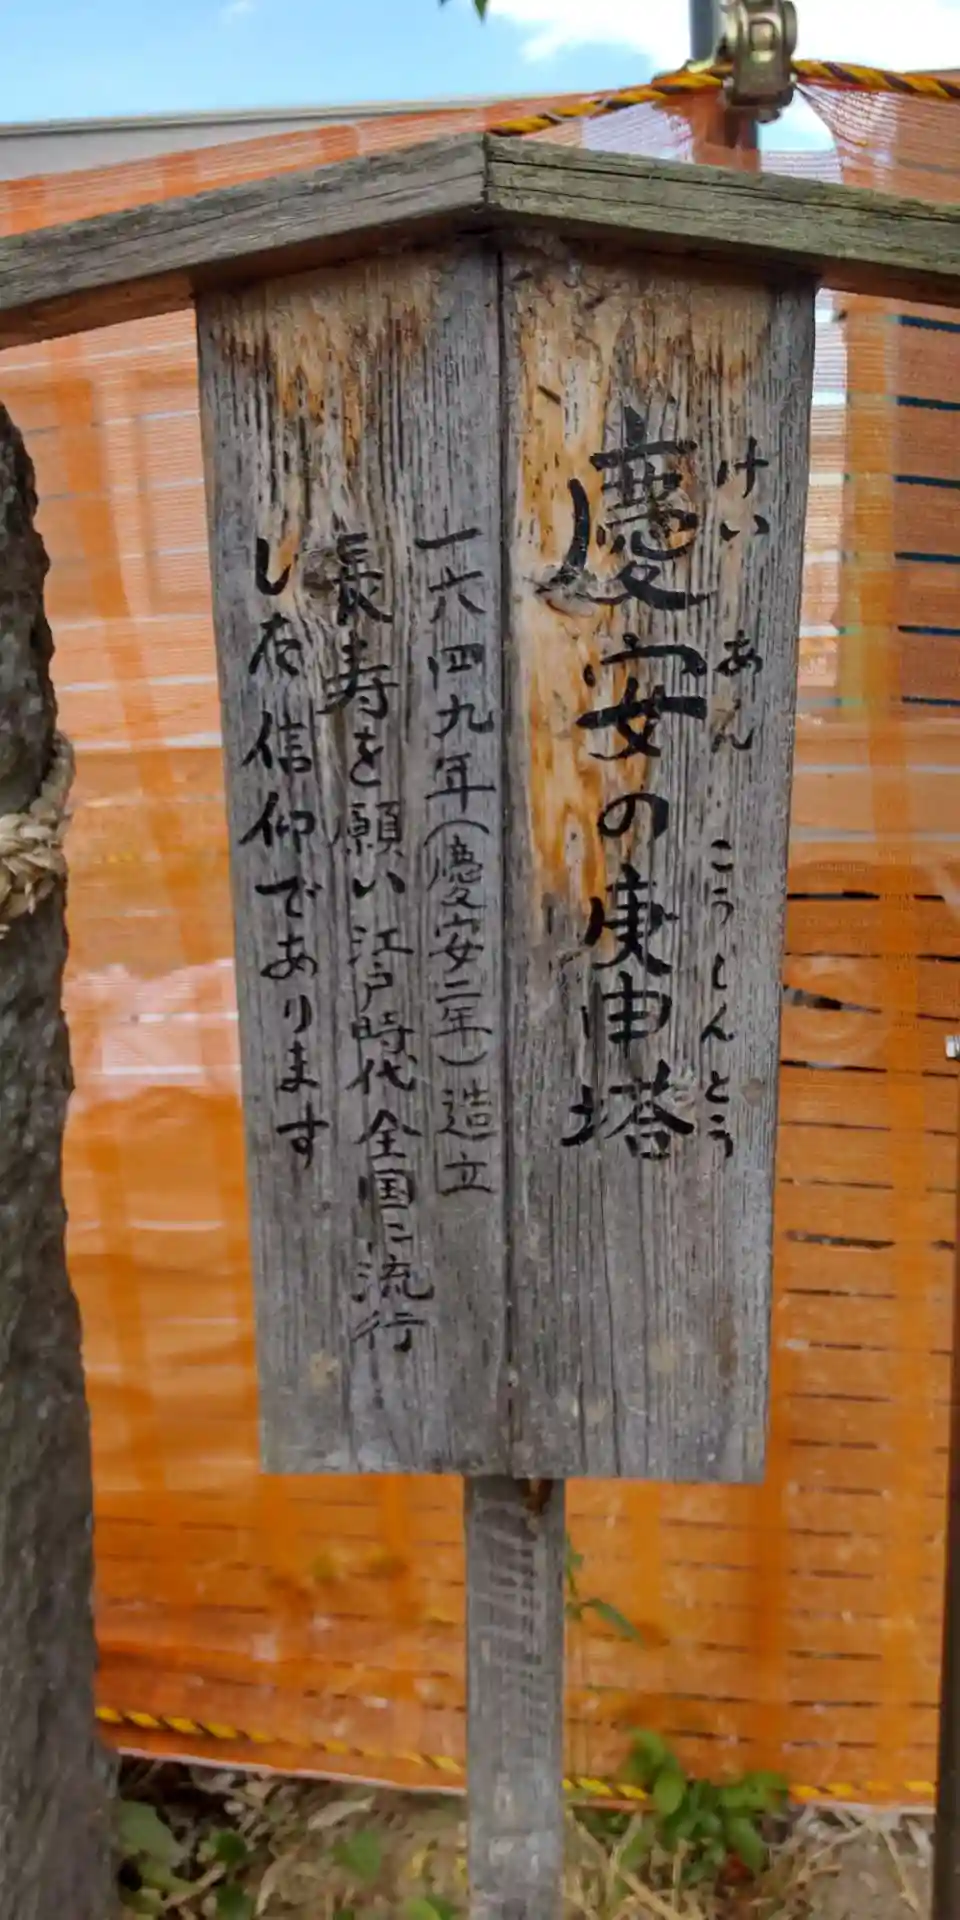 けいあんこうしんとう
慶安の庚申塔
一六四九年(慶安二年)造立
長寿を願い江戸時代全国に流行
した信仰であります